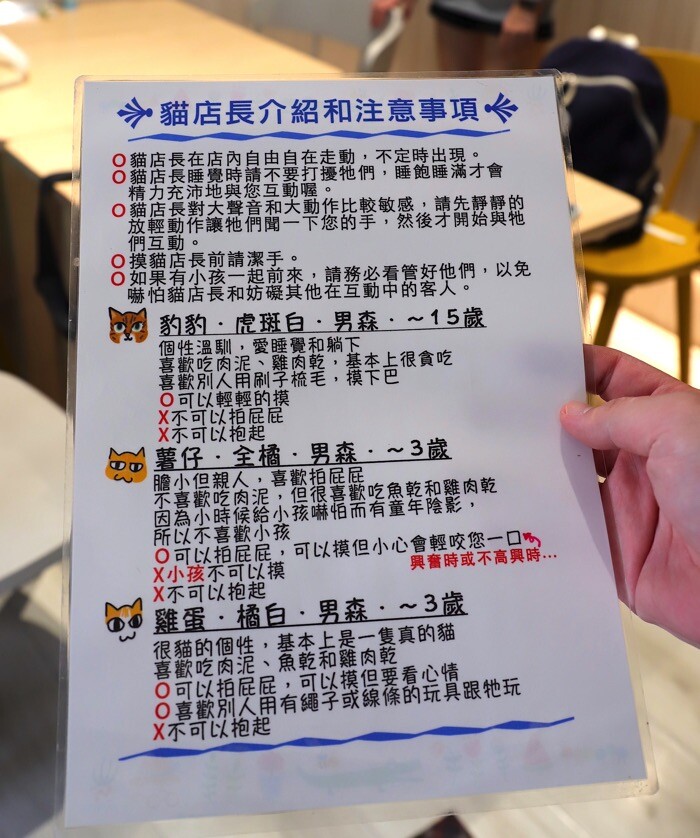 貓店長介紹和注意事項
O貓店長在店內自由自在走動，不定時出現。
O貓店長睡覺時請不要打擾牠們，睡飽睡滿才會
精力充沛地與您互動喔。
O貓店長對大聲音和大動作比較敏感，請先靜靜的
放輕動作讓牠們聞一下您的手，然後才開始與牠
們互動。
O摸貓店長前請潔手。
O如果有小孩一起前來，請務必看管好他們，以免
嚇怕貓店長和妨礙其他在互動中的客人。
豹豹．虎斑白．男森．~15歲
個性溫馴，愛睡覺和躺下
喜歡吃肉泥、雞肉乾，基本上很貪吃
喜歡別人用刷子梳毛，摸下巴
O可以輕輕的摸
X不可以拍屁屁
X不可以抱起
薯仔．全橘．男森．~3歲
膽小但親人，喜歡拍屁屁
不喜歡吃肉泥，但很喜歡吃魚乾和雞肉乾
因為小時候給小孩嚇怕而有童年陰影，
所以不喜歡小孩
O可以拍屁屁，可以摸但小心會輕咬您一口
興奮時或不高興時...
X小孩不可以摸
X不可以抱起
雞蛋．橘白．男森．~3歲
很貓的個性，基本上是一隻真的貓
喜歡吃肉泥、魚乾和雞肉乾
O可以拍屁屁，可以摸但要看心情
O喜歡別人用有繩子或線條的玩具跟牠玩
X不可以抱起